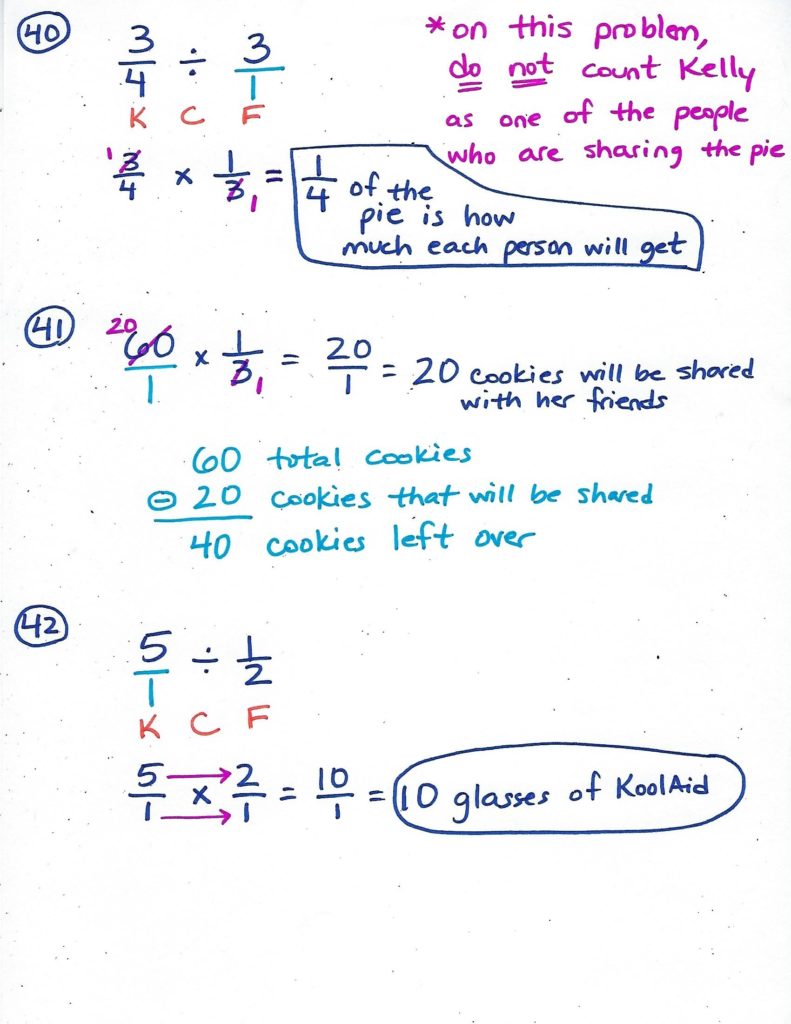 40
3/4 ÷ 3/1
K C F
* on this problem,
do not count Kelly
as one of the people
who are sharing the pie
1 3/4 x 1/3 1 = 1/4 of the
pie is how
much each person will get
41
20 60/1 x 1/3 1 = 20/1 = 20 cookies will be shared
with her friends
60 total cookies
- 20 cookies that will be shared
40 cookies left over
42
5/1 ÷ 1/2
K C F
5/1 x 2/1 = 10/1 = 10 glasses of KoolAid